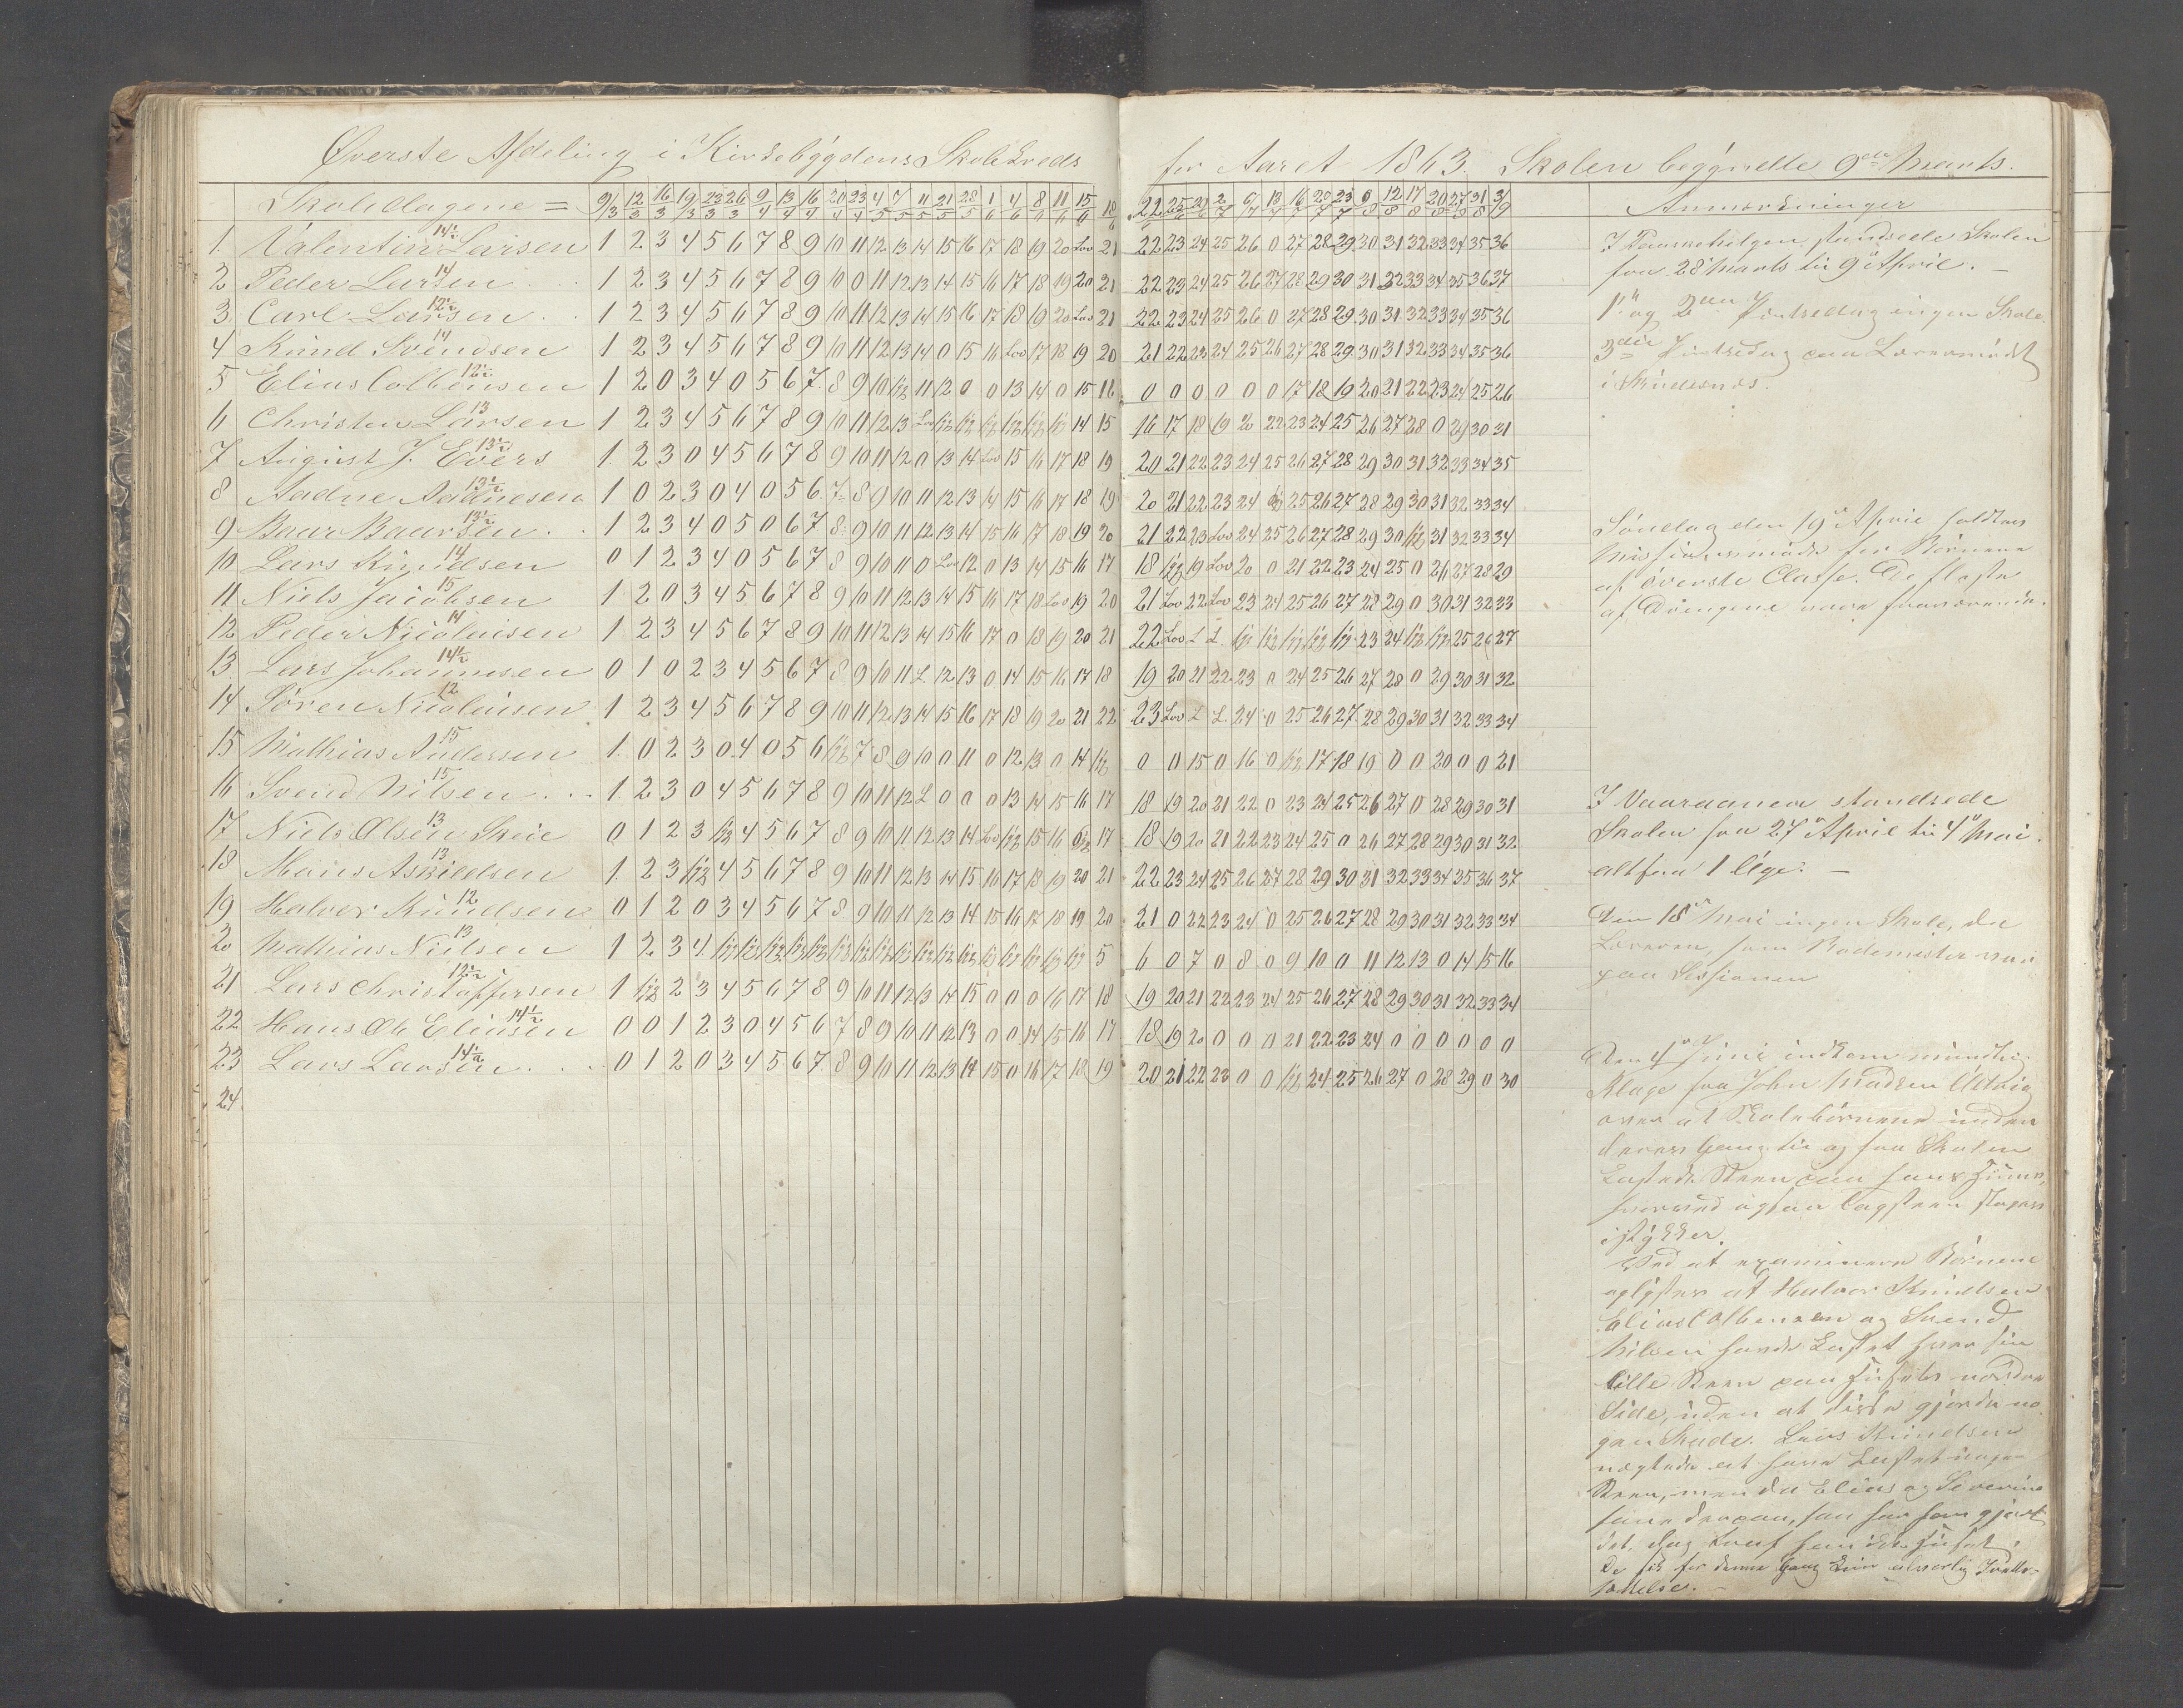 Øverste Afdeling i Kirkebÿgdens Skolekreds
for Aaret 1863. Skolen begÿndte 9de Marts.
Skoledagene = 9/3 12/3 16/3 19/3 23/3 26/3 9/4 13/4 16/4 20/4 23/4 4/5 7/5 11/5 21/5 28/5 1/6 4/6 8/6 11/6 15/6 18/6
Anmærkninger
1. Valentin Larsen 14½ 1 2 3 4 5 6 7 8 9 10 11 12 13 14 15 16 17 18 19 20 Lov 21 22 23 24 25 26 0 27 28 29 30 31 32 33 34 35 36
2 Peder Larsen 14 1 2 3 4 5 6 7 8 9 10 0 11 12 13 14 15 16 17 18 19 20 21 22 23 24 25 26 27 28 29 30 31 32 33 34 35 36 37
3 Carl Larsen 12½ 1 2 3 4 5 6 7 8 9 10 11 12 13 14 15 16 17 18 19 20 Lov 21 22 23 24 25 26 0 27 28 29 30 31 32 33 34 35 36
4 Knud Svendsen 14 1 2 3 4 5 6 7 8 9 10 11 12 13 14 0 15 16 Lov 17 18 19 20 21 22 23 24 25 26 27 28 29 30 31 32 33 34 35 36
5 Elias Colbensen 12½ 1 2 0 3 4 0 5 6 7 8 9 10 1/2 11 12 0 0 13 14 0 15 16 0 0 0 0 0 0 17 18 19 20 21 22 23 24 25 26
6 Christen Larsen 13 1 2 3 4 5 6 7 8 9 10 11 12 13 14 15 16 17 18 19 20 22 23 24 25 26 27 28 0 29 30 31
7 August J. Evers 13½ 1 2 3 0 4 5 6 7 8 9 10 11 12 0 13 14 Lov 15 16 17 18 19 20 21 22 23 24 25 26 27 28 29 30 31 32 33 34 35
8 Aadne Aadnesen 13½ 1 0 2 3 0 4 0 5 6 7 8 9 10 11 12 13 14 15 16 17 18 19 20 21 22 23 24 1/2 25 26 27 28 29 30 31 32 33 34
9 Baar Baarsen 13½ 1 2 3 4 0 5 0 6 7 8 9 10 11 12 13 14 15 16 17 18 19 20 21 22 23 Lov 24 25 26 27 28 29 30 1/2 31 32 33 34
10 Lars Knudsen 14 0 1 2 3 4 0 5 6 7 8 9 10 11 0 Lov 12 0 13 14 15 16 17 18 1/2 19 Lov 20 0 21 22 23 24 25 0 26 27 28 29
11 Niels Jacobsen 15 1 2 0 3 4 5 6 7 8 9 10 11 12 13 14 15 16 17 18 Lov 19 20 21 Lov 22 Lov 23 24 25 26 27 28 29 0 30 31 32 33
12 Peder Nicolaisen 14 1 2 3 4 5 6 7 8 9 10 11 12 13 14 15 16 17 0 18 19 20 21 22 Lov L L 1/2 1/2 1/2 1/2 1/2 23 24 1/2 1/2 25 26 27
13 Lars Johannesen 14½ 0 1 0 2 3 4 5 6 7 8 9 10 11 L 12 13 0 14 15 16 17 18 19 20 21 22 23 0 24 25 26 27 28 0 29 30 31 32
14 Sören Nicolaisen 12 1 2 3 4 5 6 7 8 9 10 11 12 13 14 15 16 17 18 19 20 21 22 23 Lov L L 24 0 25 26 27 28 29 30 31 32 33 34
15 Mathias Andersen 15 1 0 2 3 0 4 0 5 6 1/2 7 8 9 10 0 11 0 12 13 0 14 1/2 0 0 15 0 16 0 1/2 17 18 19 0 0 20 0 0 21
16 Svend Nilsen 15 1 2 3 0 4 5 6 7 8 9 10 11 12 L 0 0 0 13 14 15 16 17 18 19 20 21 22 0 23 24 25 26 27 0 28 29 30 31
17 Niels Olsen Skeie 13 0 1 2 3 1/2 4 5 6 7 8 9 10 11 12 13 14 Lov 1/2 15 16 17 18 19 20 21 22 23 24 25 0 26 27 28 29 30 31 32
18 Mons Askildsen 13 1 2 3 1/2 4 5 6 7 8 9 10 11 12 13 14 15 16 17 18 19 20 21 22 23 24 25 26 27 28 29 30 31 32 33 34 35 36 37
19 Halvor Knudsen 12 0 1 2 0 3 4 5 6 7 8 9 10 11 12 13 14 15 16 17 18 19 20 21 0 22 23 24 0 25 26 27 28 29 30 31 32 33 34
20 Mathias Nielsen 13 1 2 3 4 5 6 0 7 0 8 0 9 10 0 11 12 13 0 14 15 16
21 Lars Christoffersen 12½ 1 1/2 2 3 4 5 6 7 8 9 10 11 12 13 14 15 0 0 0 16 17 18 19 20 21 22 23 24 25 26 27 28 29 30 31 32 33 34
22 Hans Ole Eliasen 14½ 0 0 1 2 3 0 4 5 6 7 8 9 10 11 12 13 0 0 14 15 16 17 18 19 20 0 0 0 21 22 23 24 0 0 0 0 0 0
23 Lars Larsen 14½ 0 1 2 0 3 4 5 6 7 8 9 10 11 12 13 14 15 0 16 17 18 19 20 21 22 23 0 0 1/2 24 25 26 27 0 28 29 0 30
24
I Paaskehelgen standsede Skolen
fra 28 Marts til 9 April. –
1ste og 2den Pintsedag ingen Skole
3die Pintsedag paa Lærermødet
i Skudesnæs.
Söndag den 19 April holdtes
Missionsmöde for Börnene
af överste Classe. De fleste
af Drengene vare fraværende.
I Vaaraanen standsede
Skolen fra 27 April til 4 Mai.
altsaa 1 Uge. –
Den 18 Mai ingen Skole, da
Læreren som Rodemester var
paa Sessionen
Den 4 Juni indkom mundtlig
Klage fra John Madsen
over at Skolebörnene under
deres Gang til og fra Skolen
kastede Steen paa hans Huus,
hvorved ogsaa Tagsteen sloges
istÿkker.
Ved at examinere Börnene
oplÿstes at Halvor Knudsen
Elias Colbensen og Svend
Nilsen havde kastet hver sin
lille Steen paa Huset nordre
Side, uden at disse gjorde no-
gen Skade. Lars Knudsen
nægtede at have kastet nogen
Steen, men da Elias og Severine
saae derpaa, saa har han gjort
det. Dog traf han ikke Huset.
De fik for denne Gang kun alvorlig Irette-
sættelse. –